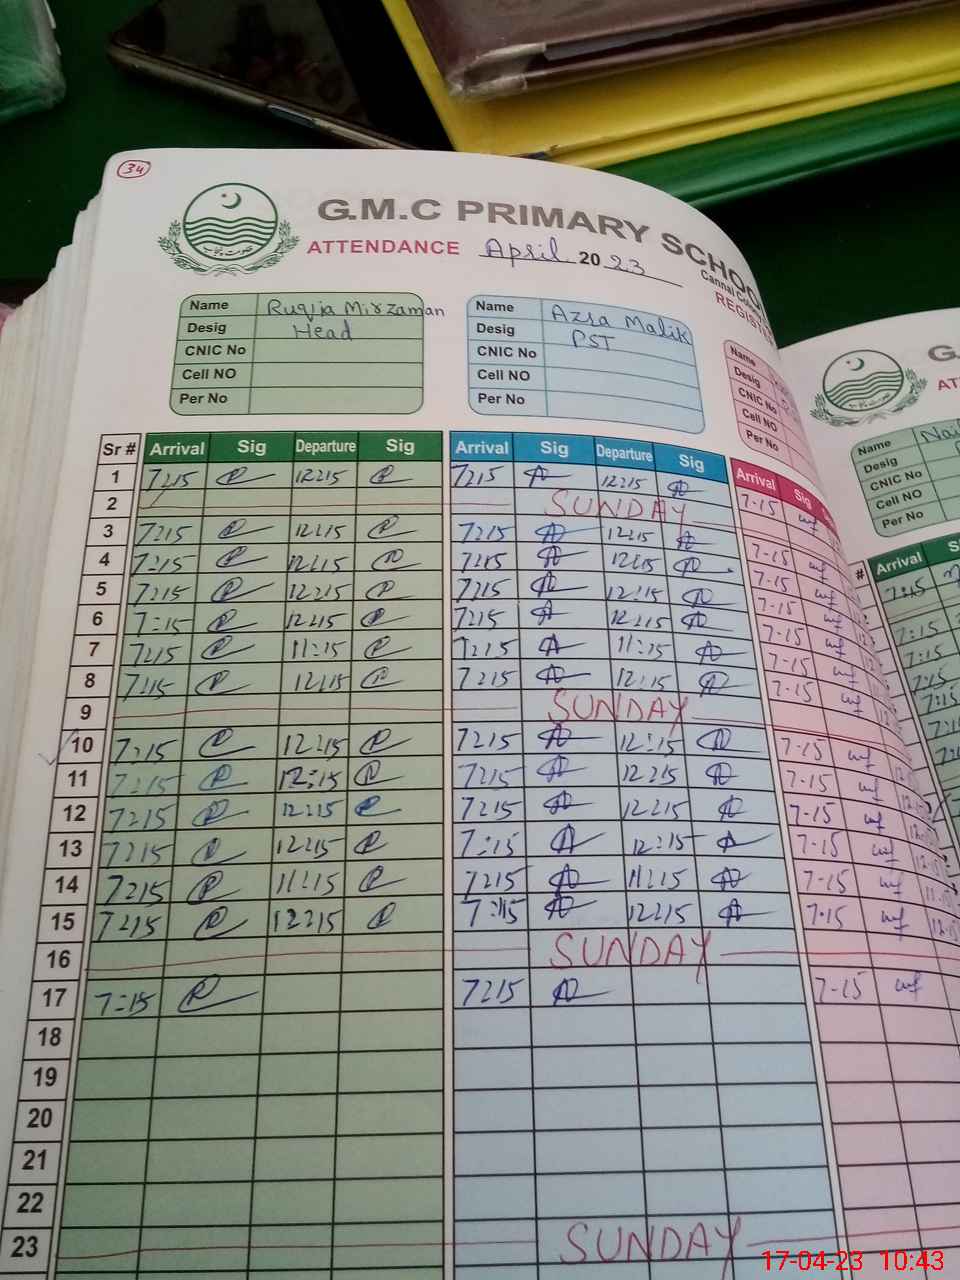 34
G.M.C PRIMARY SCHOOL
ATTENDANCE April 2023
حکومت پنجاب
Name Ruqia Mirzaman
Desig Head
CNIC No
Cell NO
Per No
Name Azra Malik
Desig PST
CNIC No
Cell NO
Per No
Name
Desig
CNIC No
Cell NO
Per No
Name
Desig
CNIC No
Cell NO
Per No
Sr # Arrival Sig Departure Sig Arrival Sig Departure Sig Arrival Sig
1 7:15 12:15 7:15 12:15 7-15
2 SUNDAY
3 7:15 12:15 7:15 12:15 7-15
4 7:15 12:15 7:15 12:15 7-15
5 7:15 12:15 7:15 12:15 7-15
6 7:15 12:15 7:15 12:15 7-15
7 7:15 11:15 7:15 11:15 7-15
8 7:15 12:15 7:15 12:15 7-15
9 SUNDAY
10 7:15 12:15 7:15 12:15 7-15
11 7:15 12:15 7:15 12:15 7-15
12 7:15 12:15 7:15 12:15 7-15
13 7:15 12:15 7:15 12:15 7-15
14 7:15 11:15 7:15 11:15 7-15
15 7:15 12:15 7:15 12:15 7-15
16 SUNDAY
17 7:15 7:15 7-15
18
19
20
21
22
23 SUNDAY
# Arrival
7:15
7:15
7:15
7:15
17-04-23 10:43